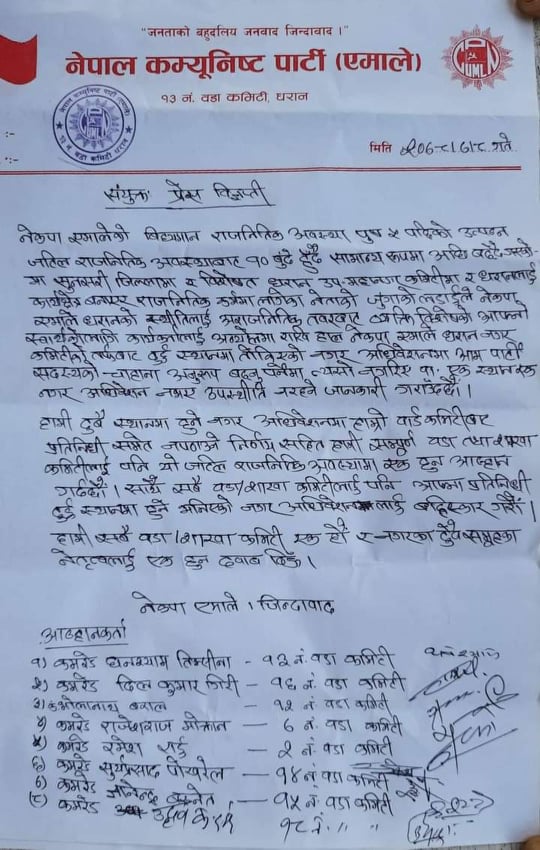 "जनताको बहुदलिय जनवाद जिन्दावाद ।"
नेपाल कम्यूनिष्ट पार्टी (एमाले)
१३ नं. वडा कमिटी, धरान
CPN UML
नेपाल कम्यूनिष्ट पार्टी (एमाले)
१३ नं. वडा कमिटी, धरान
:-
:-
मिति २०७८।७।८ गते
संयुक्त प्रेस विज्ञप्ती
नेकपा एमालेको विद्यमान राजनितिक अवस्था पुष ५ पछिको उत्पन्न
जटिल राजनितिक अवस्थाबाट १० बुदे हुदै सामान्य रूपमा अघि बढ्दै
मा सुनसरी जिल्लामा र विशेषत धरान उप-महानगर कमिटीमा र धरानलाई
कार्यक्षेत्र बनाएर राजनितिक कर्ममा लागेका नेताको जुंगाको लडाईले नेकपा
एमाले धरानको स्थीतिलाई अराजनितिक तवरबाट व्यक्ति विशेषको आफ्नो
स्वार्थकोलागि कार्यकर्तालाई अन्योलमा राखि हाल नेकपा एमाले धरान नगर
कमिटीको तर्फबाट दुई स्थानमा तोकिएको नगर अधिवेशनमा आम पार्टी
सदस्यको चाहाना अनुरूप बढ्नु पर्नेमा त्यसो नगरिए वा एक स्थानमा
नगर अधिवेशन नभए उपस्थीति नरहने जानकारी गराउँदछौं।
हामी दुबै स्थानमा हुने नगर अधिवेशनमा हाम्रो वार्ड कमिटीबाट
प्रतिनिधी समेत नपठाओ निर्णय सहित हामी सम्पूर्ण वडा तथा शाखा
कमिटीलाई पनि यो जटिल राजनितिक अवस्थामा एक हुन आव्हान
गर्दछौं। साथै सबै वडा/शाखा कमिटीलाई पनि आफ्ना प्रतिनिधी
दुई स्थानमा हुने भनिएको नगर अधिवेशनलाई बहिस्कार गरौं।
हामी सबै वडा/शाखा कमिटी एक हौं र नगरका दुवै समूहका
नेतृत्वलाई एक हुन दवाब दिऊँ।
नेकपा एमाले। जिन्दावाद
आव्हानकर्ता
१) कमरेड घनश्याम तिम्सीना - १३ नं. वडा कमिटी
२) कमरेड दिल कुमार गिरी - १६ नं वडा कमिटी
३) क. भोलानाथ बराल - १२ नं वडा कमिटी
४) कमरेड राजेशराज मोक्तान - ६ नं वडा कमिटी
५) कमरेड रमेश राई - २ नं वडा कमिटी
६) कमरेड सुर्यप्रसाद पोखरेल - १४ नं वडा कमिटी
७) कमरेड ज्ञानेन्द्र बस्नेत - १५ नं वडा कमिटी
८) कमरेड उद्धव १८ नं. " "